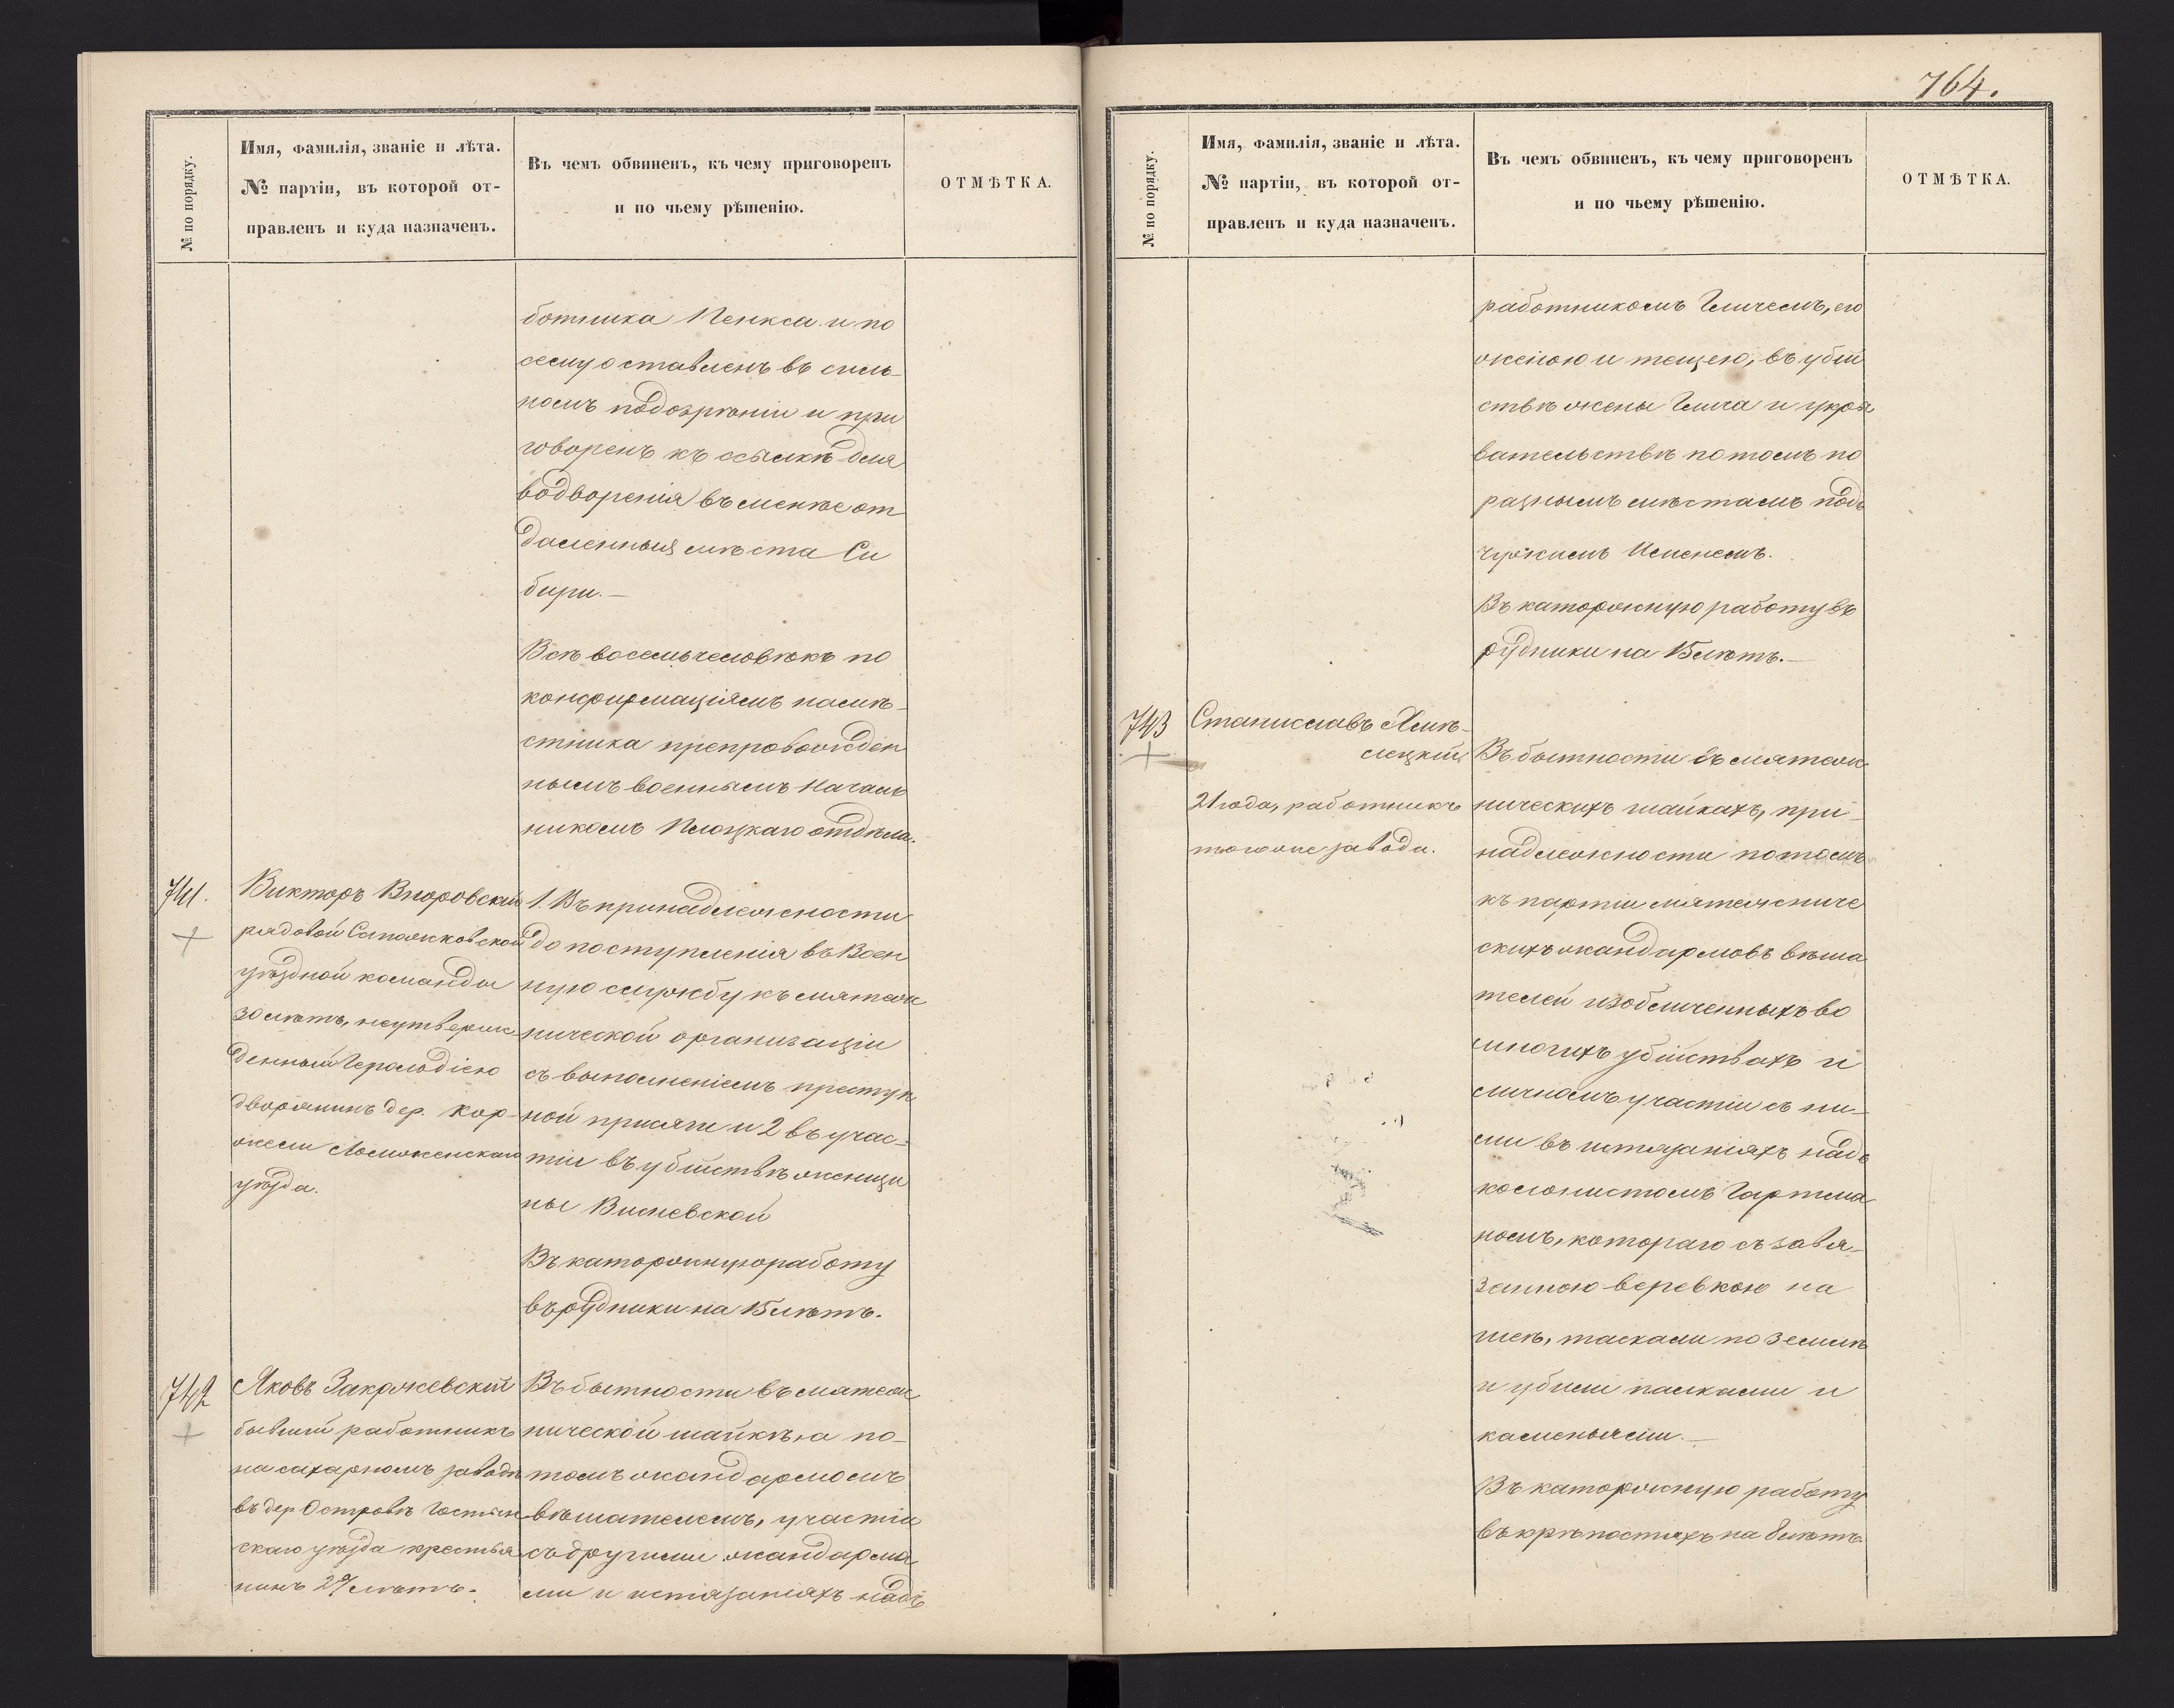 764.
№ по порядку.
Имя, фамилія, званіе и лѣта.
№ партіи, въ которой от-
правленъ и куда назначенъ.
Въ чемъ обвиненъ, къ чему приговоренъ
и по чьему рѣшенію.
ОТМѢТКА.
ботника Пенкса и по
сему оставленъ въ силь-
номъ подозрѣніи и при
говоренъ къ ссылкѣ для
водворенія въ менѣе от
даленныя мѣста Си
бири.—
Всѣ восемь человѣкъ по
конфирмаціямъ намѣ-
стника препровожден
нымъ военнымъ началь
никомъ Плоцкаго отдѣла.
741.
Викторъ
рядовой Сапожковской
уѣздной команды
30 лѣтъ, неутверж-
денный Герольдіею
дворянинъ дер. Кор-
жели Ломженскаго
уѣзда.
1. Въ принадлежности
до поступленія въ Воен
ную службу къ мятеж
нической организаціи
съ выполненіемъ преступ
ной присяги и 2 въ учас-
тіи въ убійствѣ женщи
ны Висневской
Въ каторжную работу
въ рудники на 15 лѣтъ.
742
Яковъ Закржевскій
бывшій работникъ
на сахарномъ заводѣ
въ дер Островѣ Гостын
скаго уѣзда крестья
нинъ 29 лѣтъ.
Въ бытности въ мятеж
нической шайкѣ, а по-
томъ жандармомъ
вѣшателемъ, участіи
съ другими жандарма
ми и истязаніяхъ надъ
№ по порядку.
Имя, фамилія, званіе и лѣта.
№ партіи, въ которой от-
правленъ и куда назначенъ.
Въ чемъ обвиненъ, къ чему приговоренъ
и по чьему рѣшенію.
ОТМѢТКА.
работникомъ его
женою и тещею, въ убій
ствѣ жены и укры
вательствѣ потомъ по
разнымъ мѣстамъ подъ
чужимъ Именемъ.
Въ каторжную работу въ
рудники на 15 лѣтъ.—
743
Станиславъ
21 года, работникъ
тогоже завода.
Въ бытности въ мятеж
ническихъ шайкахъ, при-
надлежности потомъ
къ партіи мятежниче
скихъ жандармовъ вѣша
телей изобличенныхъ во
многихъ убійствахъ и
личномъ участіи съ ни-
ми въ истязаніяхъ надъ
колонистомъ Гартма
номъ, котораго съ завя-
занною веревкою на
шеѣ, таскали по землѣ
и убили палками и
каменьями.—
Въ каторжную работу
въ крѣпостяхъ на 8 лѣтъ.